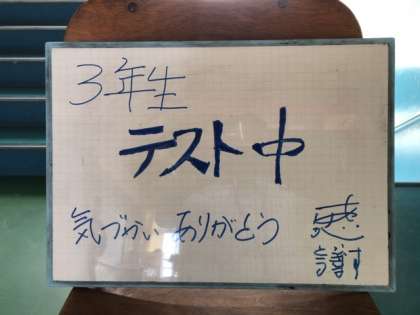 3年生
テスト中
気づかい ありがとう
感謝